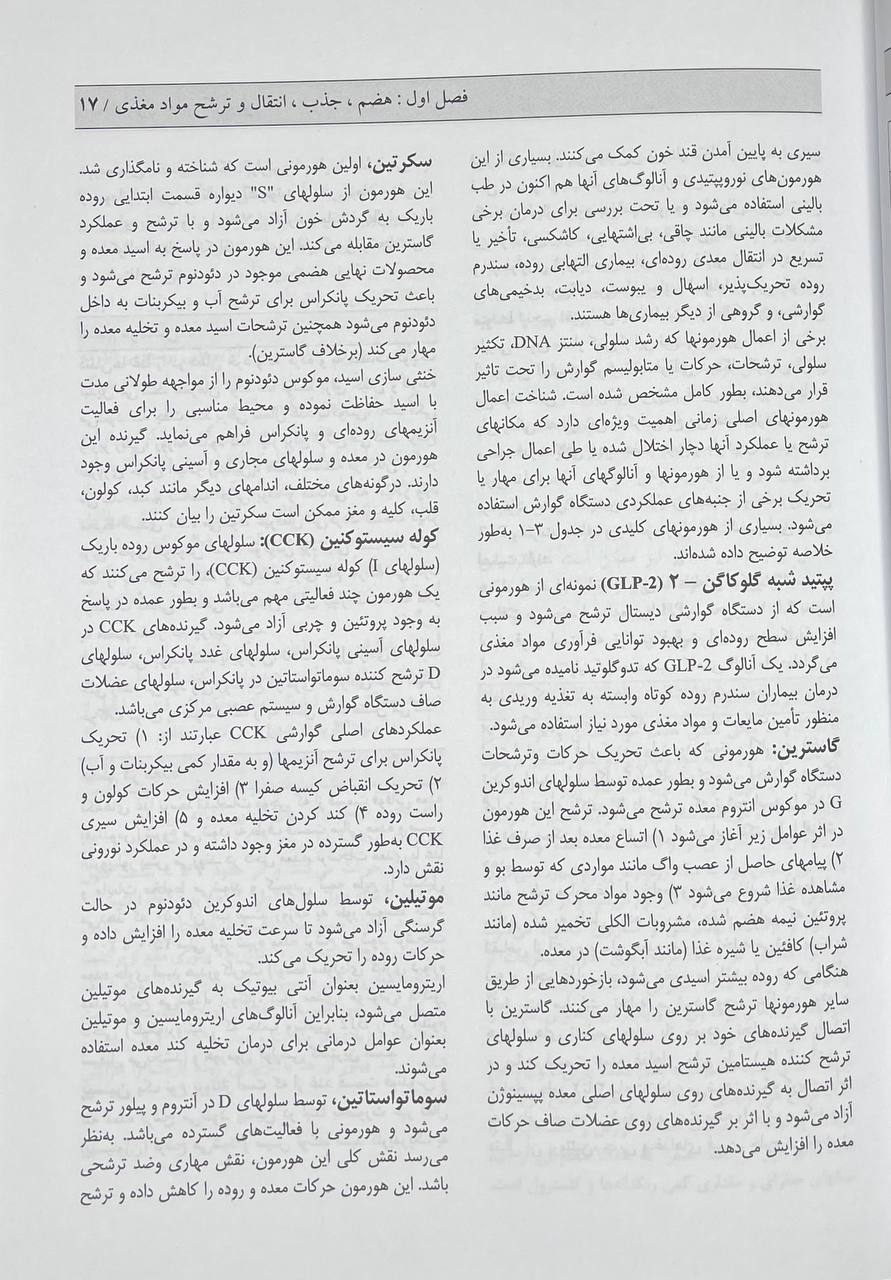 فصل اول : هضم ، جذب ، انتقال و ترشح مواد مغذی / ۱۷
سیری به پایین آمدن قند خون کمک می‌کنند. بسیاری از این
هورمون‌های نوروپپتیدی و آنالوگ‌های آنها هم اکنون در طب
بالینی استفاده می‌شود و یا تحت بررسی برای درمان برخی
مشکلات بالینی مانند چاقی، بی‌اشتهایی، کاشکسی، تأخیر یا
تسریع در انتقال معدی روده‌ای، بیماری التهابی روده، سندرم
روده تحریک‌پذیر، اسهال و یبوست، دیابت، بدخیمی‌های
گوارشی، و گروهی از دیگر بیماری‌ها هستند.
برخی از اعمال هورمونها که رشد سلولی، سنتز DNA، تکثیر
سلولی، ترشحات، حرکات یا متابولیسم گوارش را تحت تاثیر
قرار می‌دهند، بطور کامل مشخص شده است. شناخت اعمال
هورمونهای اصلی زمانی اهمیت ویژه‌ای دارد که مکانهای
ترشح یا عملکرد آنها دچار اختلال شده یا طی اعمال جراحی
برداشته شود و یا از هورمونها و آنالوگهای آنها برای مهار یا
تحریک برخی از جنبه‌های عملکردی دستگاه گوارش استفاده
می‌شود. بسیاری از هورمونهای کلیدی در جدول ۳-۱ به‌طور
خلاصه توضیح داده شده‌اند.
پپتید شبه گلوکاگن – ۲ (GLP-2) نمونه‌ای از هورمونی
است که از دستگاه گوارشی دیستال ترشح می‌شود و سبب
افزایش سطح روده‌ای و بهبود توانایی فرآوری مواد مغذی
می‌گردد. یک آنالوگ GLP-2 که تدوگلوتید نامیده می‌شود در
درمان بیماران سندرم روده کوتاه وابسته به تغذیه وریدی به
منظور تأمین مایعات و مواد مغذی مورد نیاز استفاده می‌شود.
گاسترین: هورمونی که باعث تحریک حرکات وترشحات
دستگاه گوارش می‌شود و بطور عمده توسط سلولهای اندوکرین
G در موکوس انتروم معده ترشح می‌شود. ترشح این هورمون
در اثر عوامل زیر آغاز می‌شود ۱) اتساع معده بعد از صرف غذا
۲) پیامهای حاصل از عصب واگ مانند مواردی که توسط بو و
مشاهده غذا شروع می‌شود ۳) وجود مواد محرک ترشح مانند
پروتئین نیمه هضم شده، مشروبات الکلی تخمیر شده (مانند
شراب) کافئین یا شیره غذا (مانند آبگوشت) در معده.
هنگامی که روده بیشتر اسیدی می‌شود، بازخوردهایی از طریق
سایر هورمونها ترشح گاسترین را مهار می‌کنند. گاسترین با
اتصال گیرنده‌های خود بر روی سلولهای کناری و سلولهای
ترشح کننده هیستامین ترشح اسید معده را تحریک کند و در
اثر اتصال به گیرنده‌های روی سلولهای اصلی معده پپسینوژن
آزاد می‌شود و با اثر بر گیرنده‌های روی عضلات صاف حرکات
معده را افزایش می‌دهد.
سکرتین، اولین هورمونی است که شناخته و نامگذاری شد.
این هورمون از سلولهای "S" دیواره قسمت ابتدایی روده
باریک به گردش خون آزاد می‌شود و با ترشح و عملکرد
گاسترین مقابله می‌کند. این هورمون در پاسخ به اسید معده و
محصولات نهایی هضمی موجود در دئودنوم ترشح می‌شود و
باعث تحریک پانکراس برای ترشح آب و بیکربنات به داخل
دئودنوم می‌شود همچنین ترشحات اسید معده و تخلیه معده را
مهار می‌کند (برخلاف گاسترین).
خنثی سازی اسید، موکوس دئودنوم را از مواجهه طولانی مدت
با اسید حفاظت نموده و محیط مناسبی را برای فعالیت
آنزیمهای روده‌ای و پانکراس فراهم می‌نماید. گیرنده این
هورمون در معده و سلولهای مجاری و آسینی پانکراس وجود
دارند. درگونه‌های مختلف، اندامهای دیگر مانند کبد، کولون،
قلب، کلیه و مغز ممکن است سکرتین را بیان کنند.
کوله سیستوکنین (CCK): سلولهای موکوس روده باریک
(سلولهای I) کوله سیستوکنین (CCK)، را ترشح می‌کنند که
یک هورمون چند فعالیتی مهم می‌باشد و بطور عمده در پاسخ
به وجود پروتئین و چربی آزاد می‌شود. گیرنده‌های CCK در
سلولهای آسینی پانکراس، سلولهای غدد پانکراس، سلولهای
D ترشح کننده سوماتواستاتین در پانکراس، سلولهای عضلات
صاف دستگاه گوارش و سیستم عصبی مرکزی می‌باشد.
عملکردهای اصلی گوارشی CCK عبارتند از: ۱) تحریک
پانکراس برای ترشح آنزیمها (و به مقدار کمی بیکربنات و آب)
۲) تحریک انقباض کیسه صفرا ۳) افزایش حرکات کولون و
راست روده ۴) کند کردن تخلیه معده و ۵) افزایش سیری
CCK به‌طور گسترده در مغز وجود داشته و در عملکرد نورونی
نقش دارد.
موتیلین، توسط سلول‌های اندوکرین دئودنوم در حالت
گرسنگی آزاد می‌شود تا سرعت تخلیه معده را افزایش داده و
حرکات روده را تحریک می‌کند.
اریترومایسین بعنوان آنتی بیوتیک به گیرنده‌های موتیلین
متصل می‌شود، بنابراین آنالوگ‌های اریترومایسین و موتیلین
بعنوان عوامل درمانی برای درمان تخلیه کند معده استفاده
می‌شوند.
سوماتواستاتین، توسط سلولهای D در آنتروم و پیلور ترشح
می‌شود و هورمونی با فعالیت‌های گسترده می‌باشد. به‌نظر
می‌رسد نقش کلی این هورمون، نقش مهاری وضد ترشحی
باشد. این هورمون حرکات معده و روده را کاهش داده و ترشح